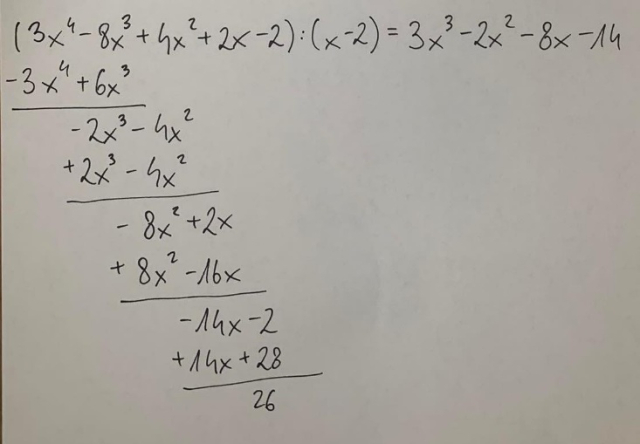 (3x⁴-8x³+4x²+2x-2):(x-2)=3x³-2x²-8x-14
-3x⁴+6x³
-2x³-4x²
+2x³-4x²
-8x²+2x
+8x²-16x
-14x-2
+14x+28
26